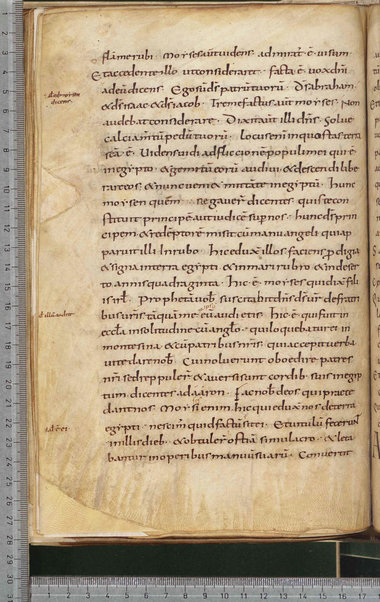 flāme rubi · Moyses aut uidens admirat̄ ē uisum ·
Et accedente illo ut consideraret · facta ē uox dn̄i
ad eū dicens · Ego sū ds̄ patrū tuorū · Ds̄ abraham ·
& ds̄ isaac & ds̄ iacob · Tremefactus aut moyses · Non
audebat considerare · Dixit aut illi dn̄s · Solue
calciam̄tū pedū tuorū · Locus enim in quo stas terra
sc̄a ē · Uidens uidi adflictionē populi mei qui ē
in egypto · & gemitū eorū audiui · & descendi libe
rare eos · & nunc ueni & mittā te in egyptū · Hunc
moysen quem negauer̄ dicentes · quis te con
stituit principē aut iudicē sup nos · hunc ds̄ prin
cipem · & redēptorē misit cū manu angeli · qui ap
paruit illi in rubo · Hic eduxit illos faciens prodigia
& signa in terra egypti · & in mari rubro · & in deser
to annis quadraginta · Hic ē moyses qui dix̄ filiis
isrl̄ · Prophetā uob̄ suscitabit dn̄s ds̄ ur̄ de fratri
bus uris tāquā me · ipsū audietis · Hic ē qui fuit in
eccl̄a in solitudine cū angl̄o · qui loquebatur ei in
monte sina · & cū patribus nr̄is · qui accepit uerba
uitę dare nob̄ · Cui noluerunt oboedire patres
nr̄i sed reppuler̄ · & auersi sunt cordib; suis in egyp
tum · dicentes ad aaron · Fac nob̄ deos qui prece
dant nos · Moysi enim · hic qui eduxit nos de terra
egypti · nescim̄ quid factū sit ei · Et uitulū fecerun̄
in illis dieb; · & obtuler̄ ostiā simulacro · & leta
bantur in operibus manuū suarū · Conuertit